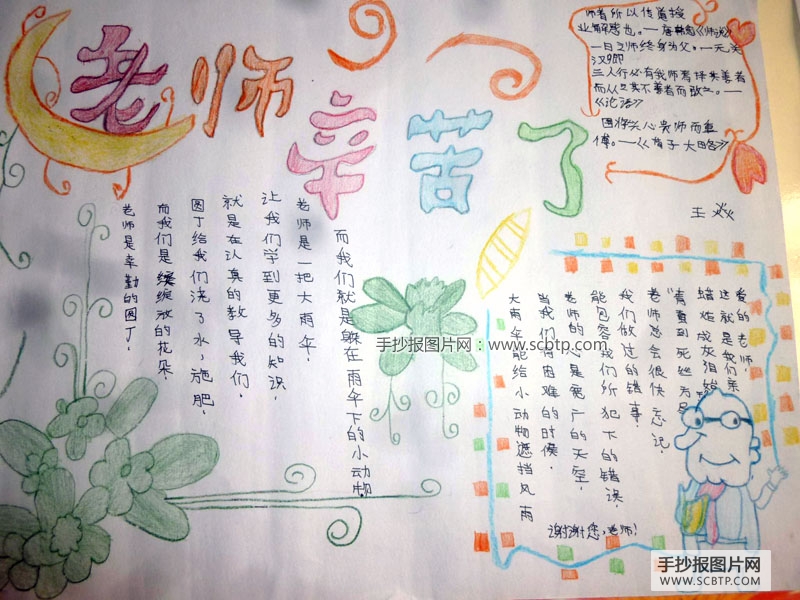 老师辛苦了
师者所以传道授
业解惑也。——唐韩愈《师说》
一日之师终身为父。一元关
汉卿
三人行必有我师焉择其善者
而从之其不善者而改之。——
《论语》
国将兴心贵师而重
傅。——《荀子大略》
王焱
老师是辛勤的园丁,
而我们是绽放的花朵,
园丁给我们浇了水,施肥,
就是在认真的教导我们,
让我们学到更多的知识,
老师是一把大雨伞,
而我们就是躲在雨伞下的小动物,
大雨伞能给小动物遮挡风雨
当我们有困难的时候,
老师的心是宽广的天空,
能包容我们所犯下的错误,
我们做过的错事,
老师总会很快忘记,
"春蚕到死丝方
蜡炬成灰泪始
这就是我们亲
爱的老师,
谢谢您,老师!
手抄报图片网:www.scbtp.com
手抄报图片网
WWW.SCBTP.COM